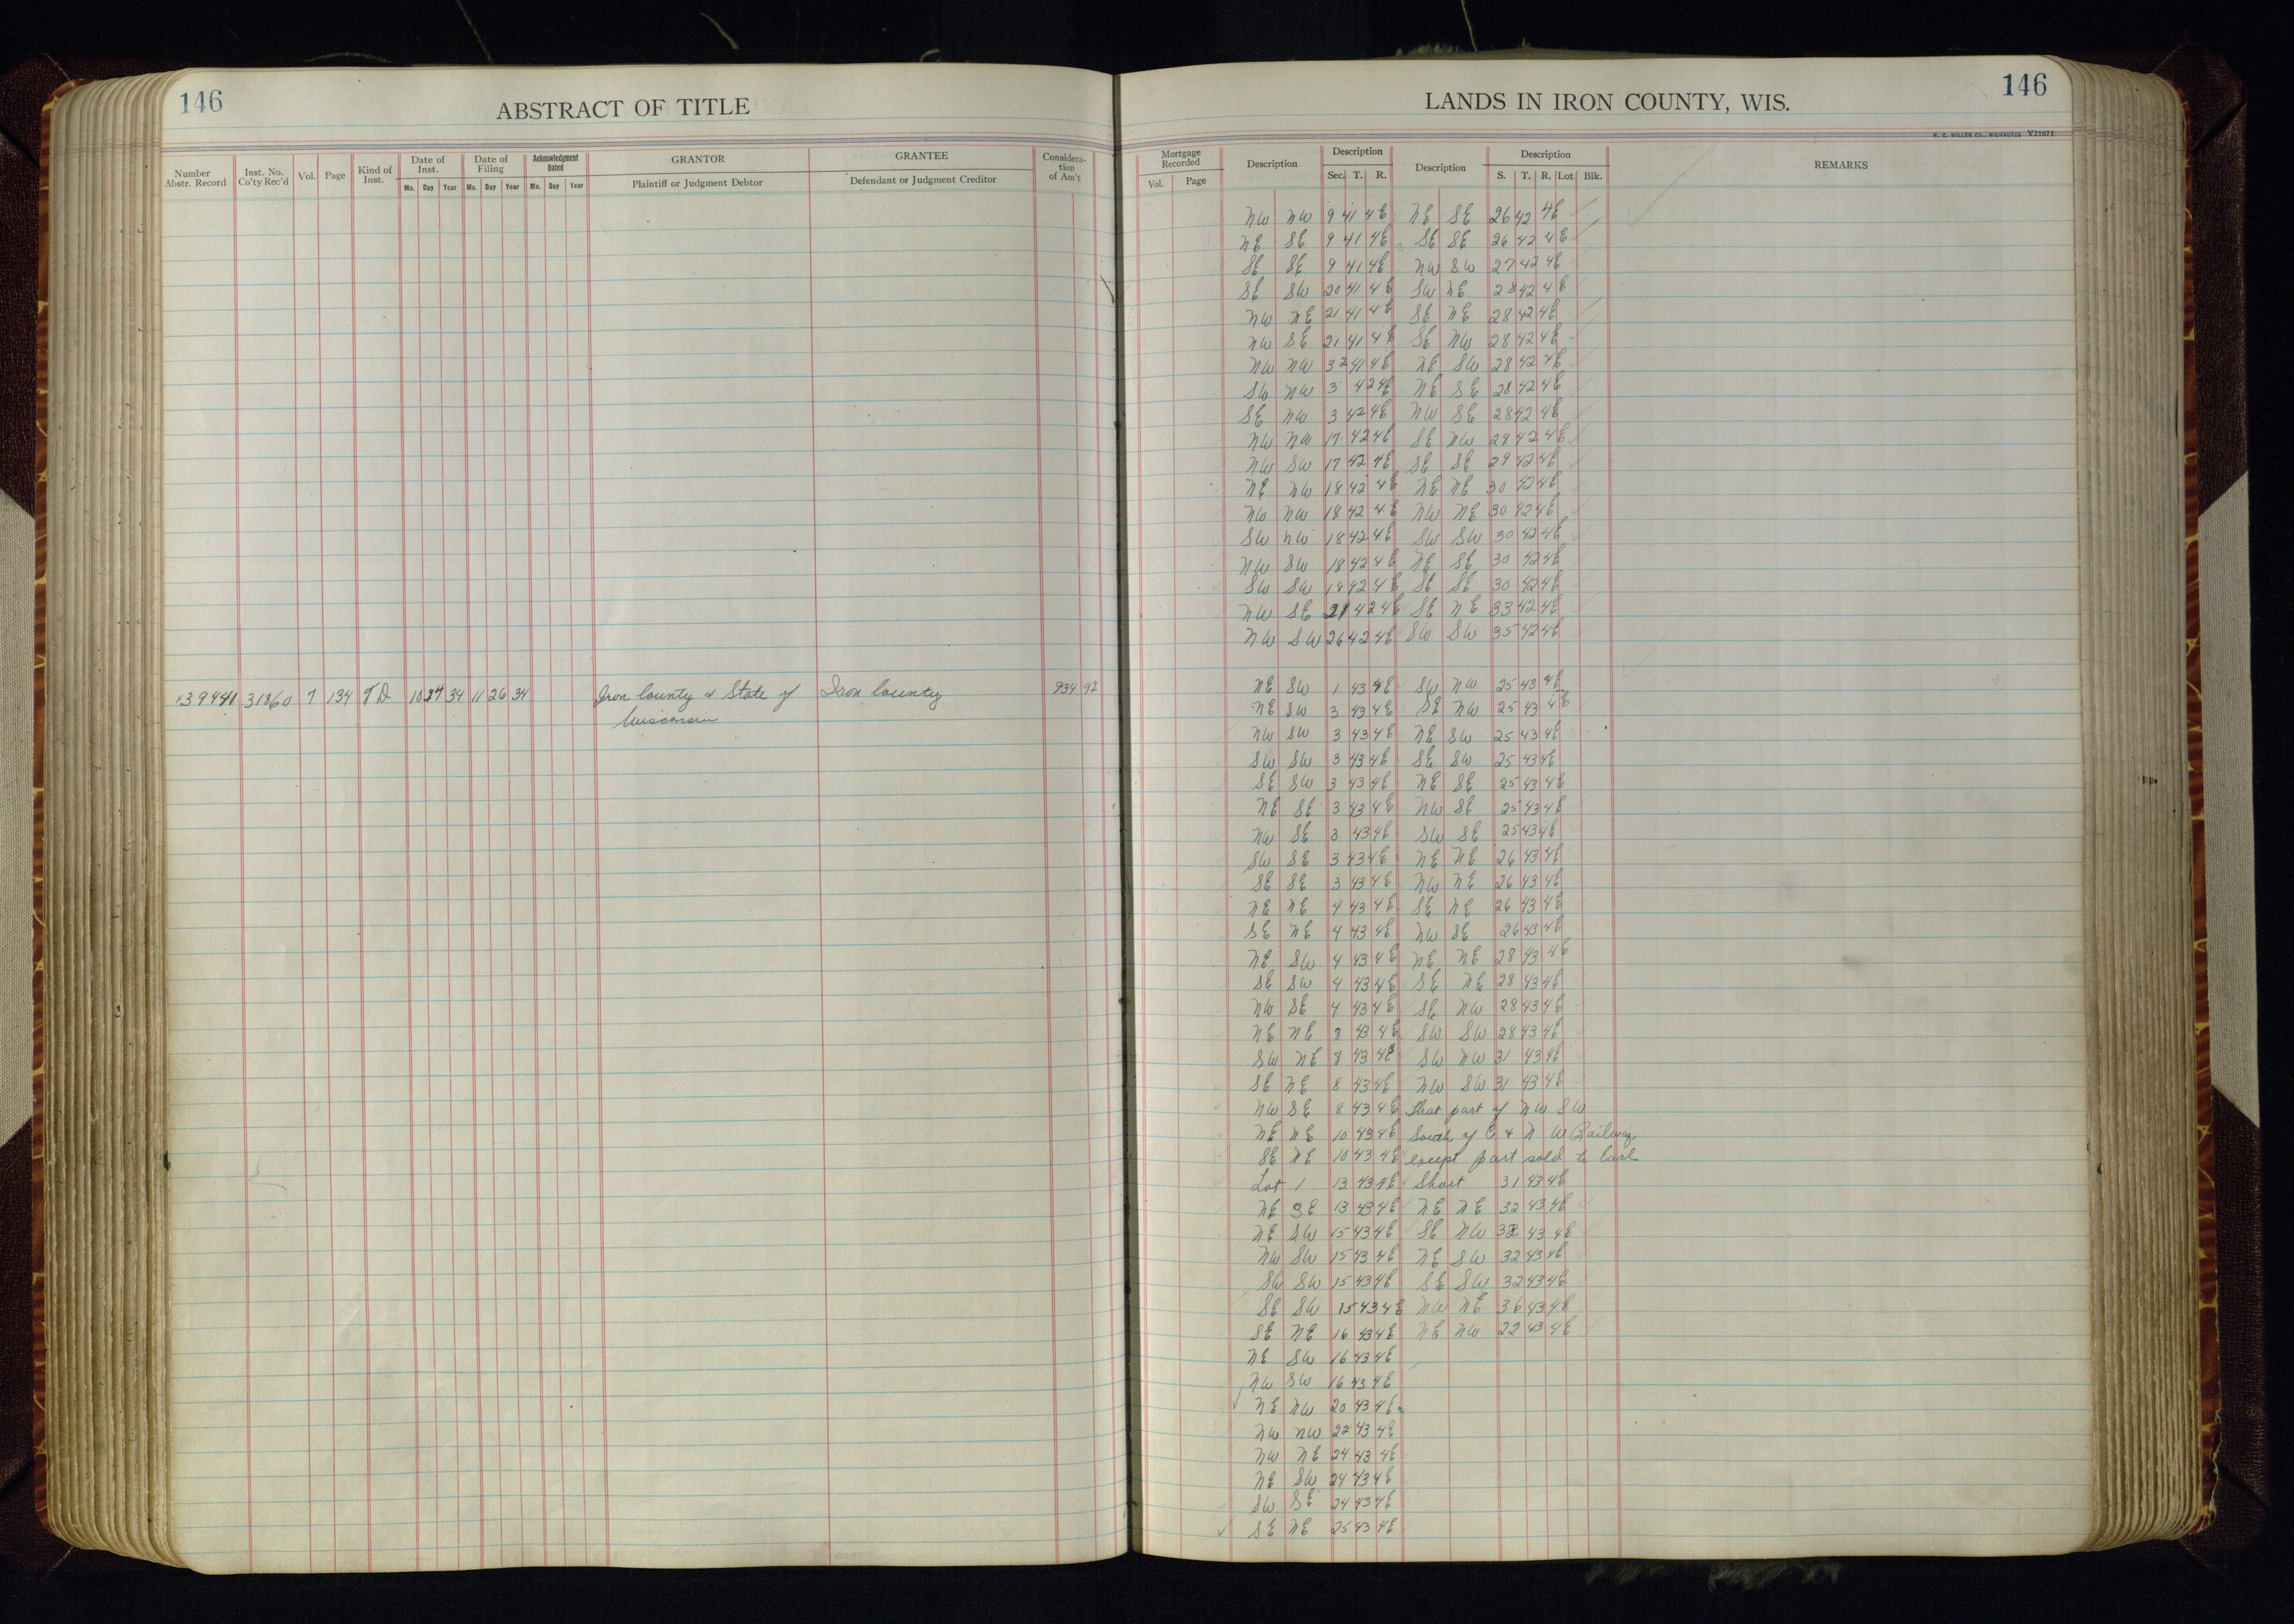 146
ABSTRACT OF TITLE
Number Abstr. Record
Inst. No. Co'ty Rec'd
Vol.
Page
Kind of Inst.
Date of Inst.
Mo. Day Year
Date of Filing
Mo. Day Year
Acknowledgment Dated
Mo. Day Year
GRANTOR
Plaintiff or Judgment Debtor
GRANTEE
Defendant or Judgment Creditor
Considera-tion of Am't
39441 31860 7 134 TD 10 27 34 11 26 34 Iron County & State of Iron County 934 92
Wisconsin
LANDS IN IRON COUNTY, WIS.
146
H. C. MILLER CO., MILWAUKEE V21671
Mortgage Recorded
Vol. Page
Description
Description
Sec. T. R.
Description
Description
S. T. R. Lot Blk.
REMARKS
NW NW 9 41 4E NE SE 26 42 4E
NE SE 9 41 4E SE SE 26 42 4E
SE SE 9 41 4E NW SW 27 42 4E
SE SW 20 41 4E SW NE 28 42 4E
NW NE 21 41 4E SE NE 28 42 4E
NW SE 21 41 4E SE NW 28 42 4E
NW NW 32 41 4E NE SW 28 42 4E
SW NW 3 42 4E NE SE 28 42 4E
SE NW 3 42 4E NW SE 28 42 4E
NW NW 17 42 4E SE NW 29 42 4E
NW SW 17 42 4E SE SE 29 42 4E
NE NW 18 42 4E NE NE 30 42 4E
NW NW 18 42 4E NW NE 30 42 4E
SW NW 18 42 4E SW SW 30 42 4E
NW SW 18 42 4E NE SE 30 42 4E
SW SW 18 42 4E SE SE 30 42 4E
NW SE 21 42 4E SE NE 33 42 4E
NW SW 26 42 4E SW SW 35 42 4E
NE SW 1 43 4E SW NW 25 43 4E
NE SW 3 43 4E SE NW 25 43 4E
NW SW 3 43 4E NE SW 25 43 4E
SW SW 3 43 4E SE SW 25 43 4E
SE SW 3 43 4E NE SE 25 43 4E
NE SE 3 43 4E NW SE 25 43 4E
NW SE 3 43 4E SW SE 25 43 4E
SW SE 3 43 4E NE NE 26 43 4E
SE SE 3 43 4E NW NE 26 43 4E
NE NE 4 43 4E SE NE 26 43 4E
SE NE 4 43 4E NW SE 26 43 4E
NE SW 4 43 4E NE NE 28 43 4E
SE SW 4 43 4E SE NE 28 43 4E
NW SE 4 43 4E SE NW 28 43 4E
NE NE 8 43 4E SW SW 28 43 4E
SW NE 8 43 4E SW NW 31 43 4E
SE NE 8 43 4E NW SW 31 43 4E
NW SE 8 43 4E That part of NW SW
NE NE 10 43 4E South of C & N W Railway,
SE NE 10 43 4E except part sold to Carl
Lot 1 13 43 4E Short 31 43 4E
NE SE 13 43 4E NE NE 32 43 4E
NE SW 15 43 4E SE NW 32 43 4E
NW SW 15 43 4E NE SW 32 43 4E
SW SW 15 43 4E SE SW 32 43 4E
SE SW 15 43 4E NW NE 36 43 4E
SE NE 16 43 4E NE NW 22 43 4E
NE SW 16 43 4E
NW SW 16 43 4E
NE NW 20 43 4E
NW NW 22 43 4E
NW NE 24 43 4E
NE SW 24 43 4E
SW SE 24 43 4E
SE NE 25 43 4E